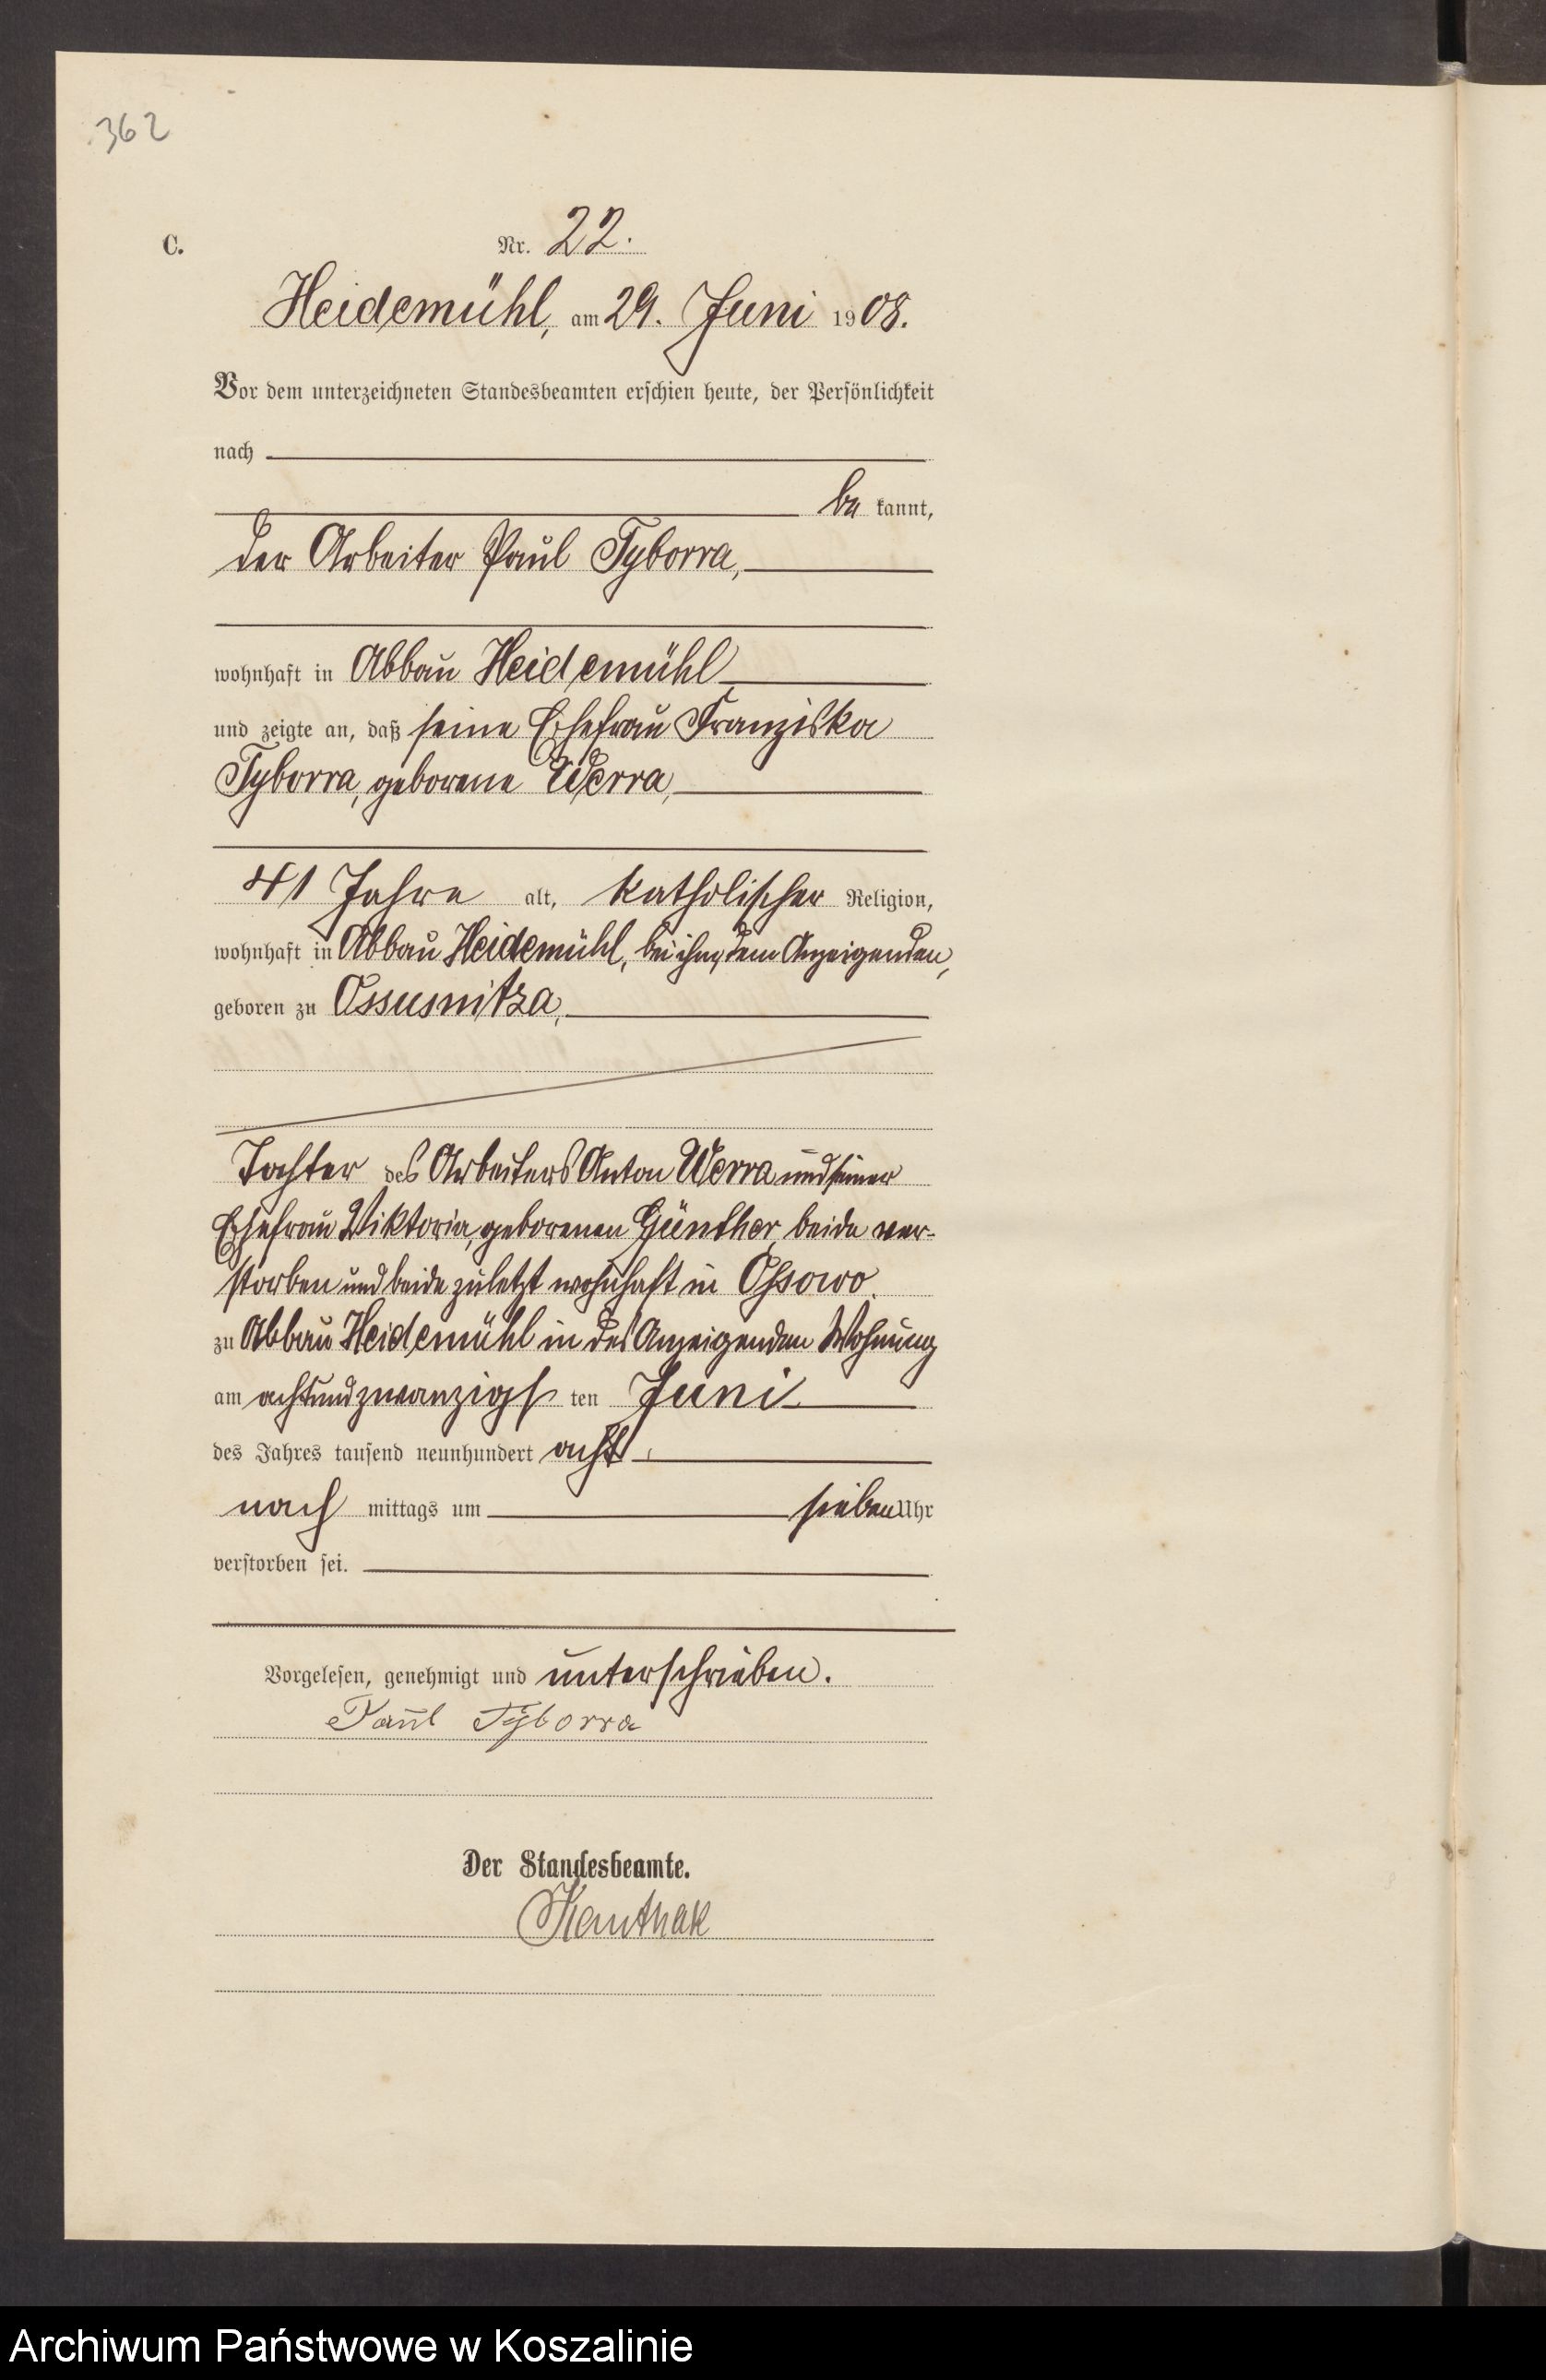 362
C. Nr. 22.
Heidemühl, am 29. Juni 1908.
Vor dem unterzeichneten Standesbeamten erschien heute, der Persönlichkeit
nach
be kannt,
der Arbeiter Paul Tyborra,
wohnhaft in Abbau Heidemühl
und zeigte an, daß seine Ehefrau Franziska
Tyborra, geborene Werra,
41 Jahre alt, katholischer Religion,
wohnhaft in Abbau Heidemühl, bei ihm, dem Anzeigenden,
geboren zu Ossusnitza,
Tochter des Arbeiters Anton Werra und seiner
Ehefrau Viktoria, geborenen Günther, beide ver-
storben und beide zuletzt wohnhaft in Ossowo.
zu Abbau Heidemühl in des Anzeigenden Wohnung
am achtundzwanzigs ten Juni
des Jahres tausend neunhundert acht,
nach mittags um sieben Uhr
verstorben sei.
Vorgelesen, genehmigt und unterschrieben.
Paul Tyborra
Der Standesbeamte.
Archiwum Państwowe w Koszalinie